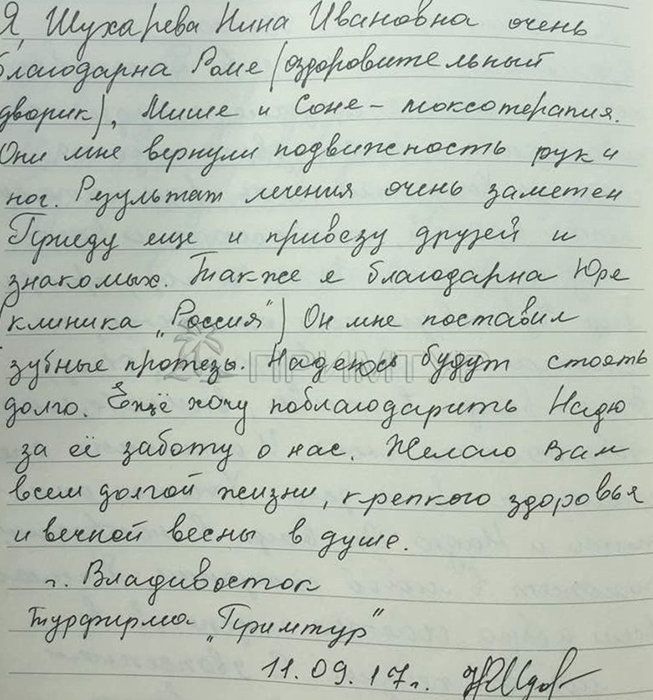 Я, Шухарева Нина Ивановна очень
благодарна Роме (оздоровительный
дворик), Мише и Соне – моксотерапия.
Они мне вернули подвижность рук и
ног. Результат лечения очень заметен
Приеду еще и привезу друзей и
знакомых. Также я благодарна Юре
(клиника „Россия") Он мне поставил
зубные протезы. Надеюсь будут стоять
долго. Ещё хочу поблагодарить Надю
за её заботу о нас. Желаю Вам
всем долгой жизни, крепкого здоровья
и вечной весны в душе.
г. Владивосток
Турфирма „Примтур"
11.09.17г.